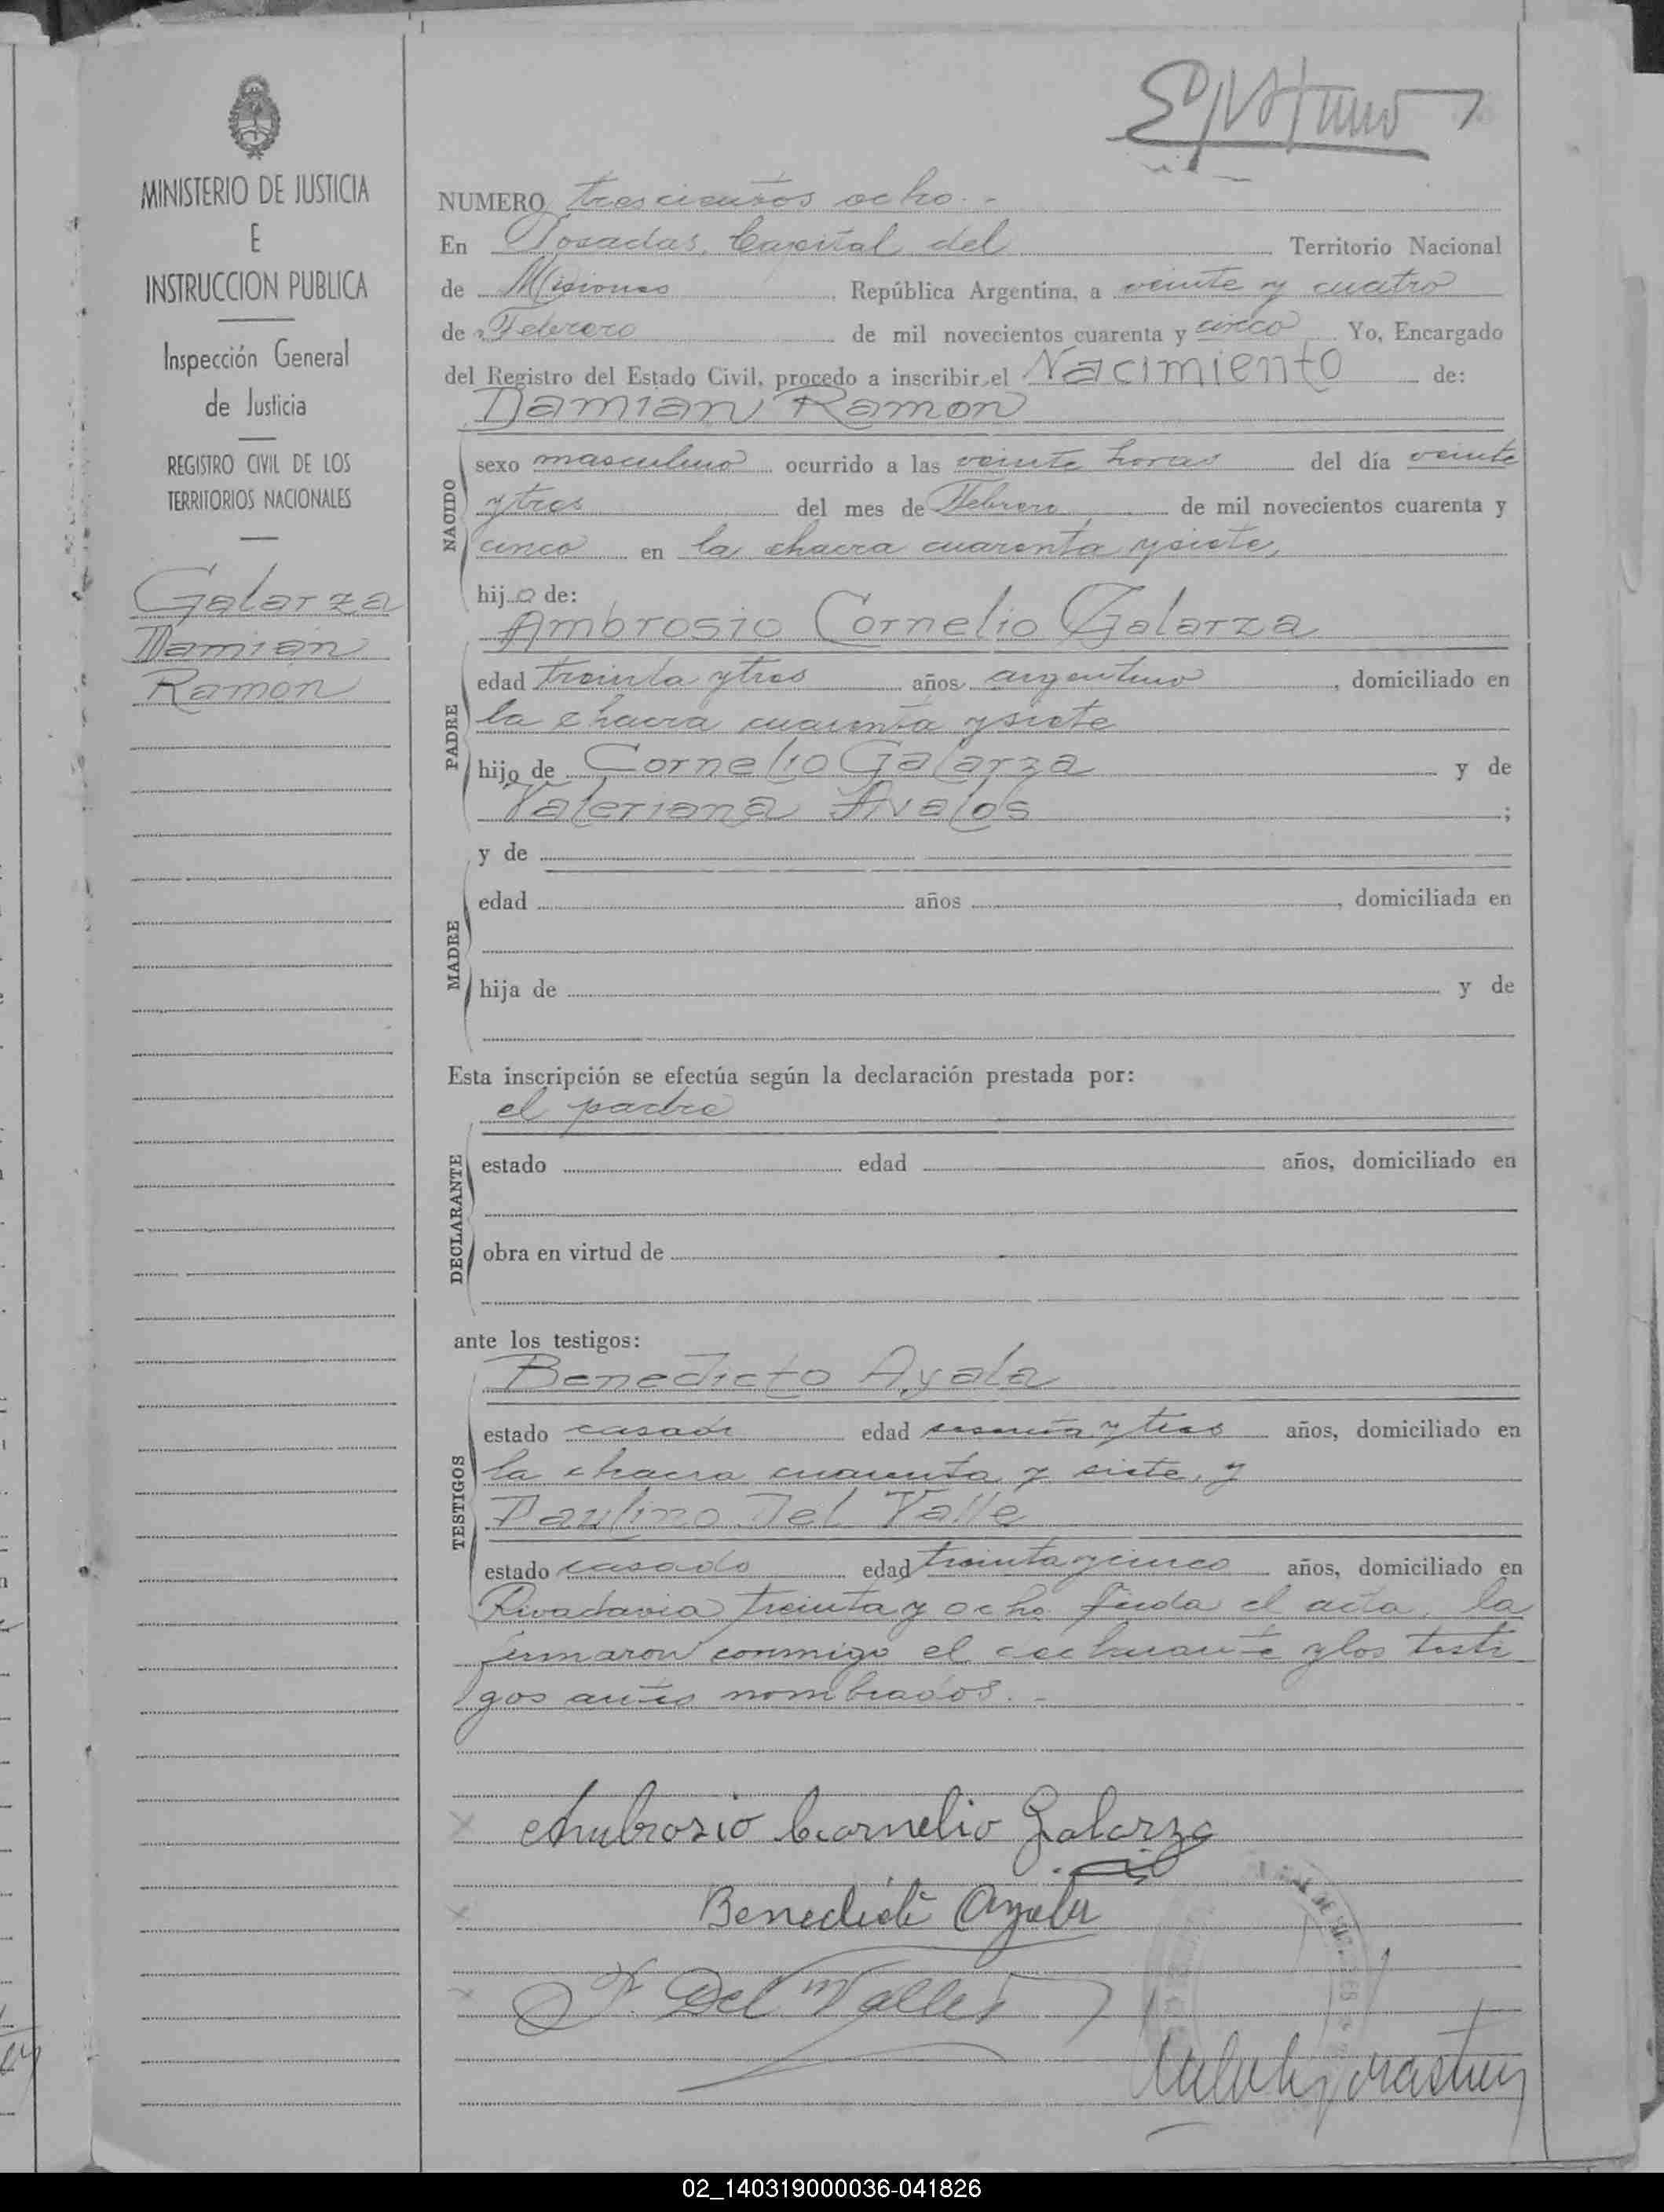 MINISTERIO DE JUSTICIA
E
INSTRUCCION PUBLICA
Inspección General
de Justicia
REGISTRO CIVIL DE LOS
TERRITORIOS NACIONALES
Galarza
Damian
Ramon
NUMERO trescientos ocho.-
En Posadas, Capital del Territorio Nacional
de Misiones, República Argentina, a veinte y cuatro
de Febrero de mil novecientos cuarenta y cinco Yo, Encargado
del Registro del Estado Civil, procedo a inscribir el Nacimiento de:
Damian Ramon
NACIDO
sexo masculino ocurrido a las veinte horas del día veinte
y tres del mes de Febrero de mil novecientos cuarenta y
cinco en la chacra cuarenta y siete,
hijo de:
Ambrosio Cornelio Galarza
PADRE
edad treinta y tres años argentino, domiciliado en
la chacra cuarenta y siete
hijo de Cornelio Galarza y de
Valeriana Avalos;
y de
MADRE
edad años, domiciliada en
hija de y de
Esta inscripción se efectúa según la declaración prestada por:
el padre
DECLARANTE
estado edad años, domiciliado en
obra en virtud de
ante los testigos:
Benedicto Ayala
TESTIGOS
estado casado edad y tres años, domiciliado en
la chacra cuarenta y siete, y
Paulino Del Valle
estado casado edad treinta y cinco años, domiciliado en
Rivadavia treinta y ocho. Leida el acta, la
firmaron conmigo el declarante y los testi
gos antes nombrados.-
Ambrosio Cornelio Galarza
Benedicto Ayala
P. Del Valle
02_140319000036-041826